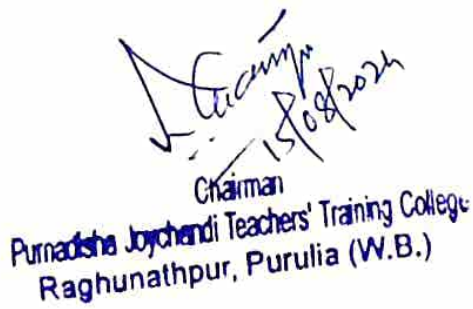 15/08/2024
Chairman
Purnadisha Joychandi Teachers' Training College
Raghunathpur, Purulia (W.B.)